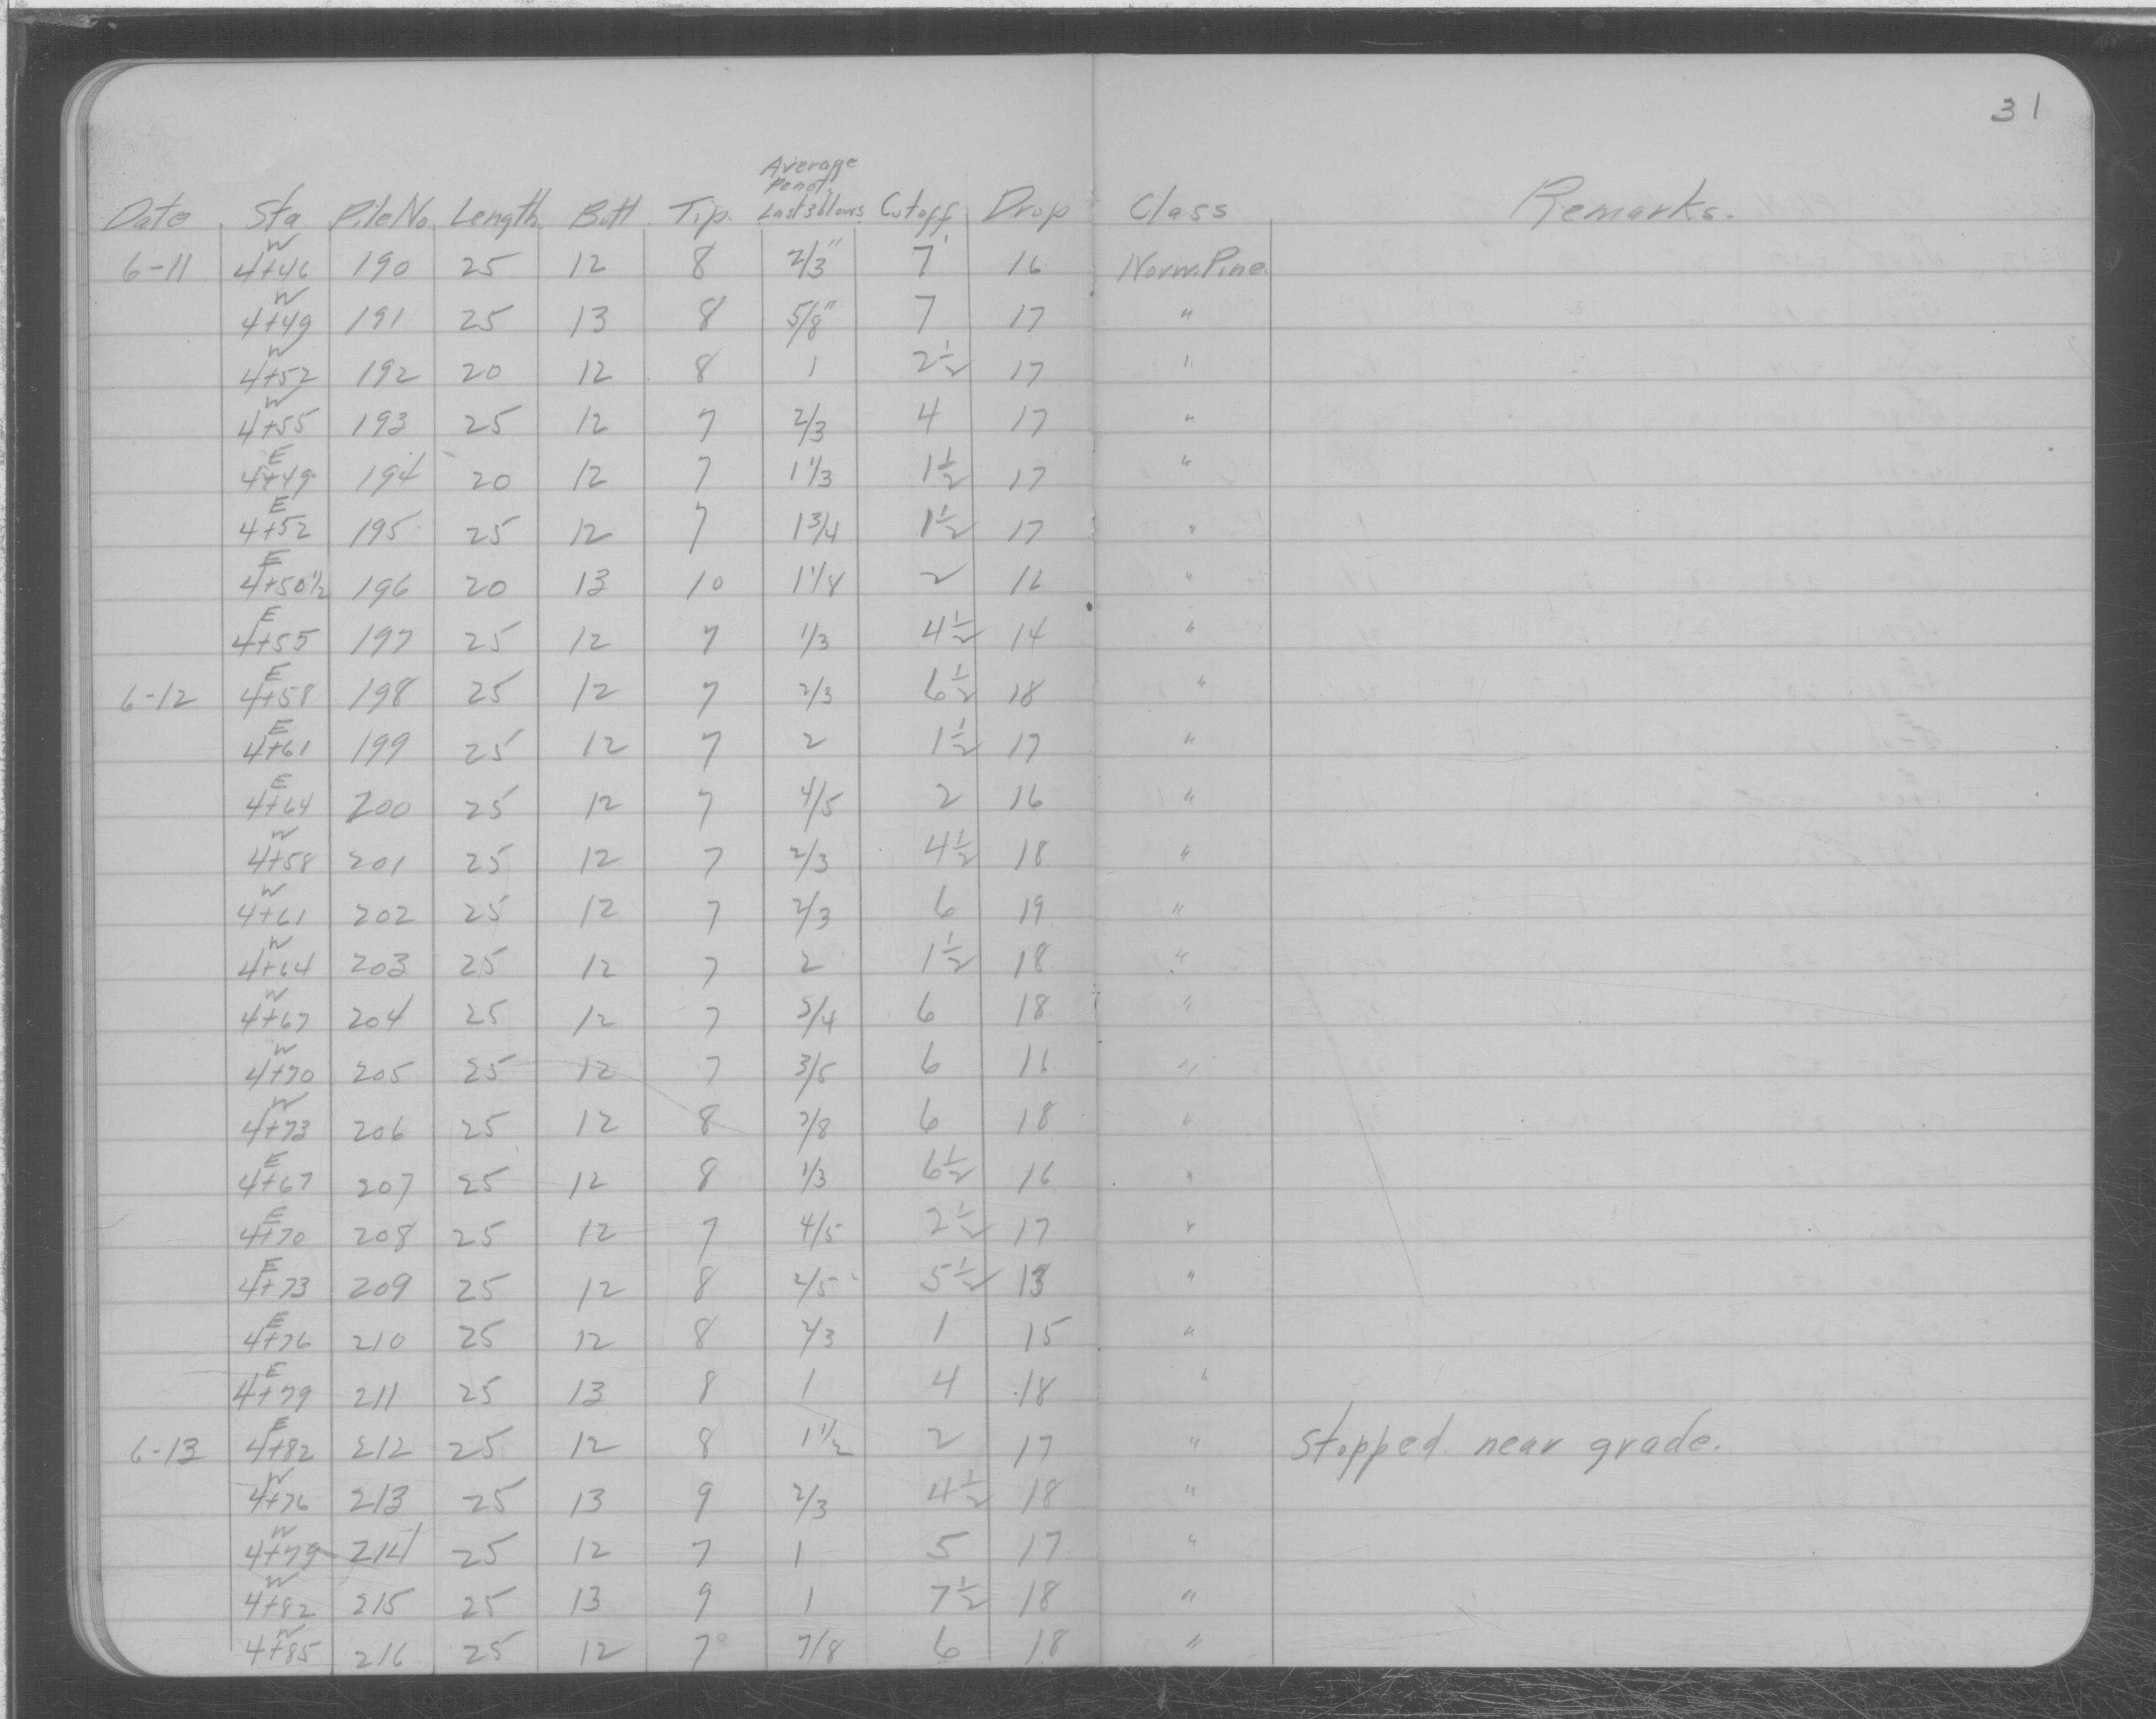 31
Average
Penet.
Date Sta. Pile No. Length. Butt Tip. Last 3 blows Cutoff Drop Class Remarks.
W
6-11 4+46 190 25 12 8 2/3" 7' 16 Norw. Pine
W
4+49 191 25 13 8 5/8" 7 17 "
W
4+52 192 20 12 8 1 2 1/2 17 "
W
4+55 193 25 12 7 2/3 4 17 "
E
4+49 194 20 12 7 1 1/3 1 1/2 17 "
E
4+52 195 25 12 7 1 3/4 1 1/2 17 "
E
4+50 1/2 196 20 13 10 1 1/8 2 16 "
E
4+55 197 25 12 7 1/3 4 1/2 14 "
E
6-12 4+58 198 25 12 7 2/3 6 1/2 18 "
E
4+61 199 25 12 7 2 1 1/2 17 "
E
4+64 200 25 12 7 4/5 2 16 "
W
4+58 201 25 12 7 2/3 4 1/2 18 "
W
4+61 202 25 12 7 2/3 6 19 "
W
4+64 203 25 12 7 2 1 1/2 18 "
W
4+67 204 25 12 7 3/4 6 18 "
W
4+70 205 25 12 7 3/5 6 16 "
W
4+73 206 25 12 8 6 18 "
E
4+67 207 25 12 8 1/3 6 1/2 16 "
E
4+70 208 25 12 7 4/5 2 1/2 17 "
E
4+73 209 25 12 8 2/5 5 1/2 13 "
E
4+76 210 25 12 8 2/3 1 15 "
E
4+79 211 25 13 8 1 4 18 "
E
6-13 4+82 212 25 12 8 1 1/2 2 17 " Stopped near grade.
W
4+76 213 25 13 9 2/3 4 1/2 18 "
W
4+79 214 25 12 7 1 5 17 "
W
4+82 215 25 13 9 1 7 1/2 18 "
W
4+85 216 25 12 7 7/8 6 18 "